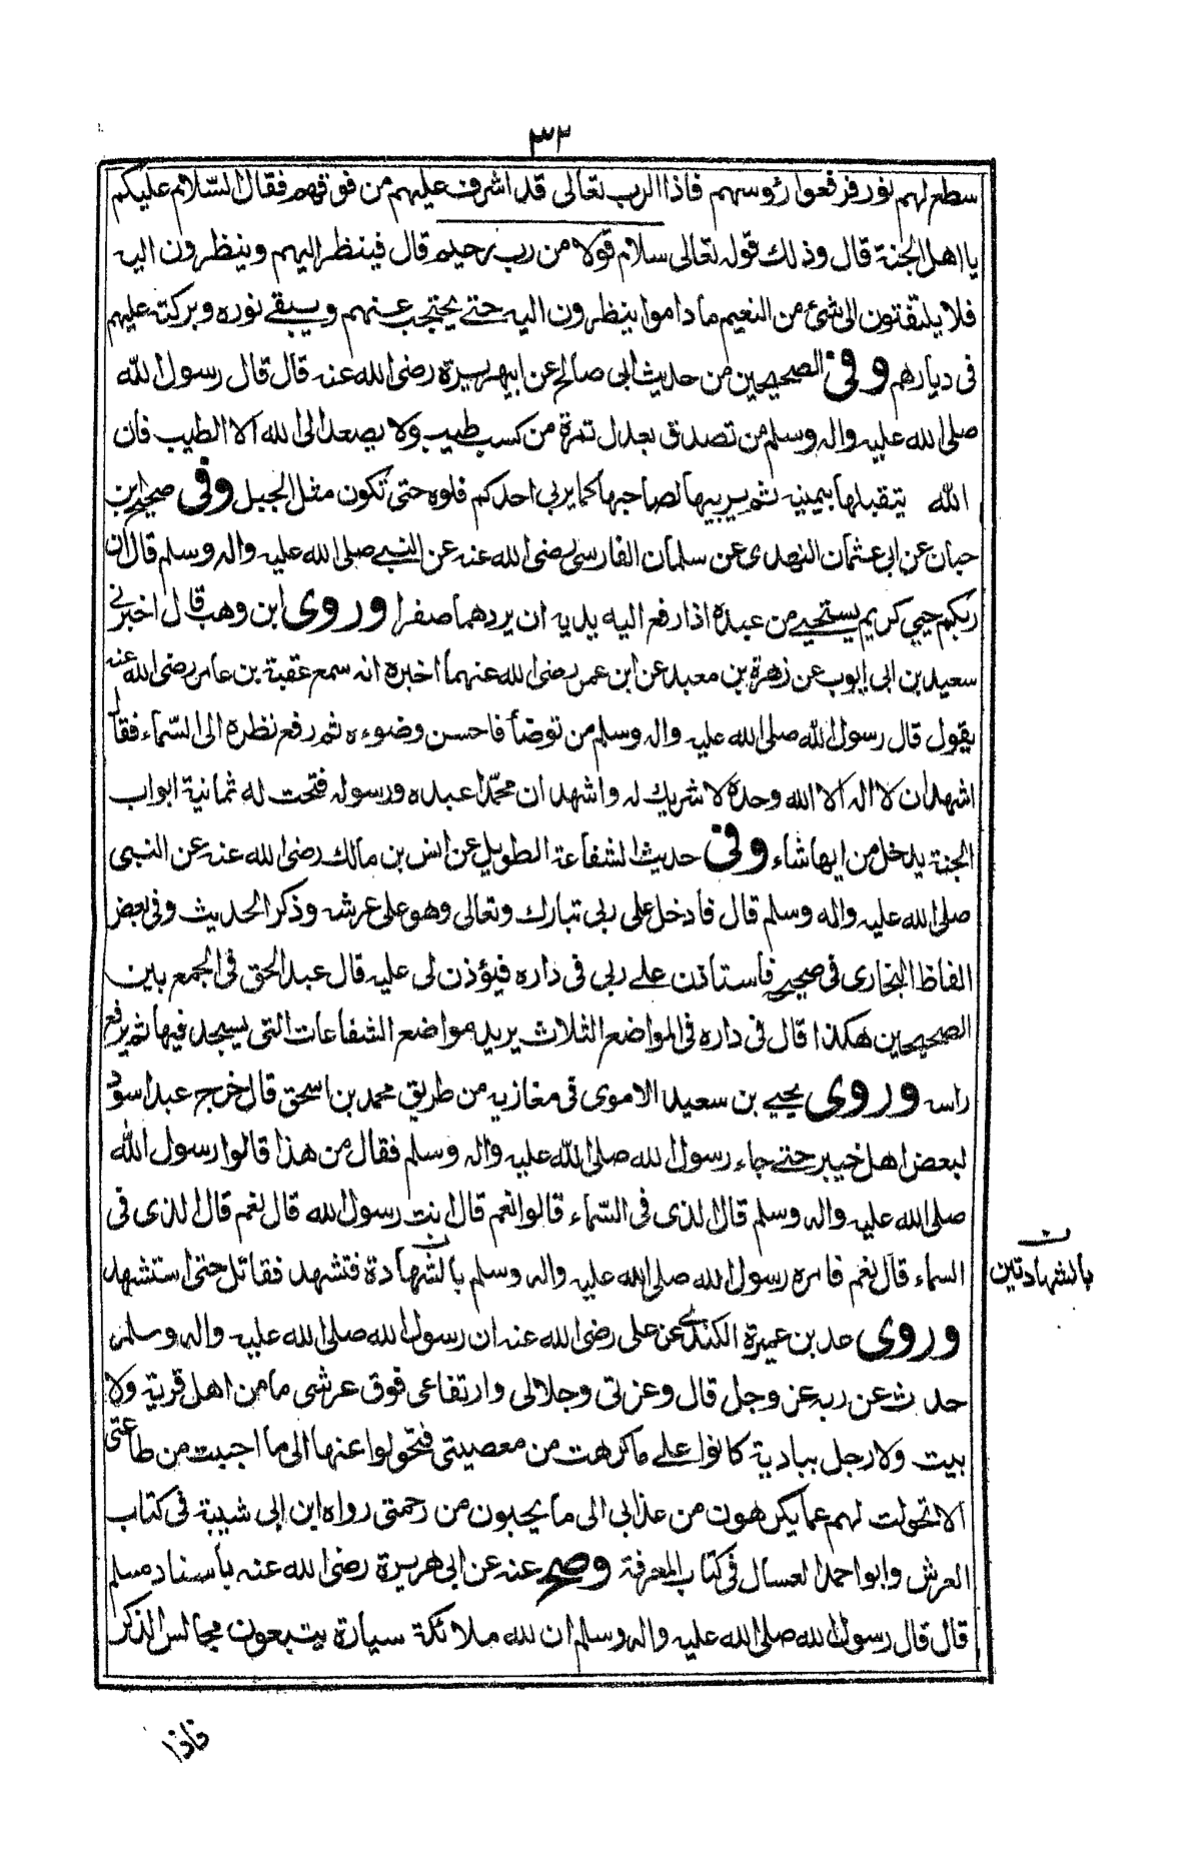 ٣٢
سطع لهم نور فرفعوا رؤوسهم فاذا الرب تعالى قد اشرف عليهم من فوقهم فقال السّلام عليكم
يا اهل الجنة قال وذلك قوله تعالى سلام قولا من رب رحيم قال فينظر اليهم وينظرون اليه
فلا يلتفتون الى شئ من النعيم ما داموا ينظرون اليه حتے يحتجب عنهم ويبقے نوره وبركته عليهم
فى ديارهم وفى الصحيحين من حديث ابى صالح عن ابيهريرة رضى الله عنه قال قال رسول الله
صلى الله عليه واله وسلم من تصدق بعدل تمرة من كسب طيب ولا يصعد الى الله الا الطيب فان
الله يتقبلها بيمينه ثم يربيها لصاحبها كما يربى احدكم فلوه حتى تكون مثل الجبل وفى صحيح ابن
حبان عن ابى عثمان النهدى عن سلمان الفارسى رضى الله عنه عن النبے صلى الله عليه واله وسلم قال ان
ربكم حيي كريم يستحيے من عبده اذا رفع اليه يديه ان يردهما صفرا وروى ابن وهب قال اخبرنے
سعيد بن ابى ايوب عن زهرة بن معبد عن ابن عمر رضى الله عنهما اخبره انه سمع عقبة بن عامر رضى الله عنه
يقول قال رسول الله صلى الله عليه واله وسلم من توضأ فاحسن وضوءه ثم رفع نظره الى السّماء فقال
اشهد ان لا اله الا الله وحده لا شريك له واشهد ان محمّدا عبده ورسوله فتحت له ثمانية ابواب
الجنة يدخل من ايها شاء وفى حديث الشفاعة الطويل عن انس بن مالك رضى الله عنه عن النبى
صلى الله عليه واله وسلم قال فادخل على ربى تبارك وتعالى وهو على عرشه وذكر الحديث وفى بعض
الفاظ البخارى فى صحيحه فاستاذن علے ربى فى داره فيؤذن لى عليه قال عبد الحق فى الجمع بين
الصحيحين هكذا قال فى داره فى المواضع الثلاث يريد مواضع الشفاعات التى يسجد فيها ثم يرفع
راسه وروى يحيے بن سعيد الاموى فى مغازيه من طريق محمد بن اسحق قال خرج عبد اسود
لبعض اهل خيبر حتے جاء رسول الله صلى الله عليه واله وسلم فقال من هذا قالوا رسول الله
صلى الله عليه واله وسلم قال الذى فى السّماء قالوا نعم قال انت رسول الله قال نعم قال الذى فى
السماء قال نعم فامره رسول الله صلى الله عليه واله وسلم بالشهادة فتشهد فقاتل حتى استشهد
بالشهادتين
وروى عد بن عميرة الكندے عن على رضى الله عنه ان رسول الله صلى الله عليه واله وسلم
حدث عن ربه عز وجل قال وعزتى وجلالى وارتفاعى فوق عرشى ما من اهل قرية ولا
بيت ولا رجل ببادية كانوا علے ما كرهت من معصيتى فتحولوا عنها الى ما احببت من طاعتى
الا تحولت لهم عما يكرهون من عذابى الى ما يحبون من رحمتى رواه ابن ابى شيبة فى كتاب
العرش وابو احمد العسال فى كتاب المعرفة وصح عنه عن ابى هريرة رضى الله عنه باسناد مسلم
قال قال رسول الله صلى الله عليه واله وسلم ان لله ملائكة سيارة يتبعون مجالس الذكر
فاذا